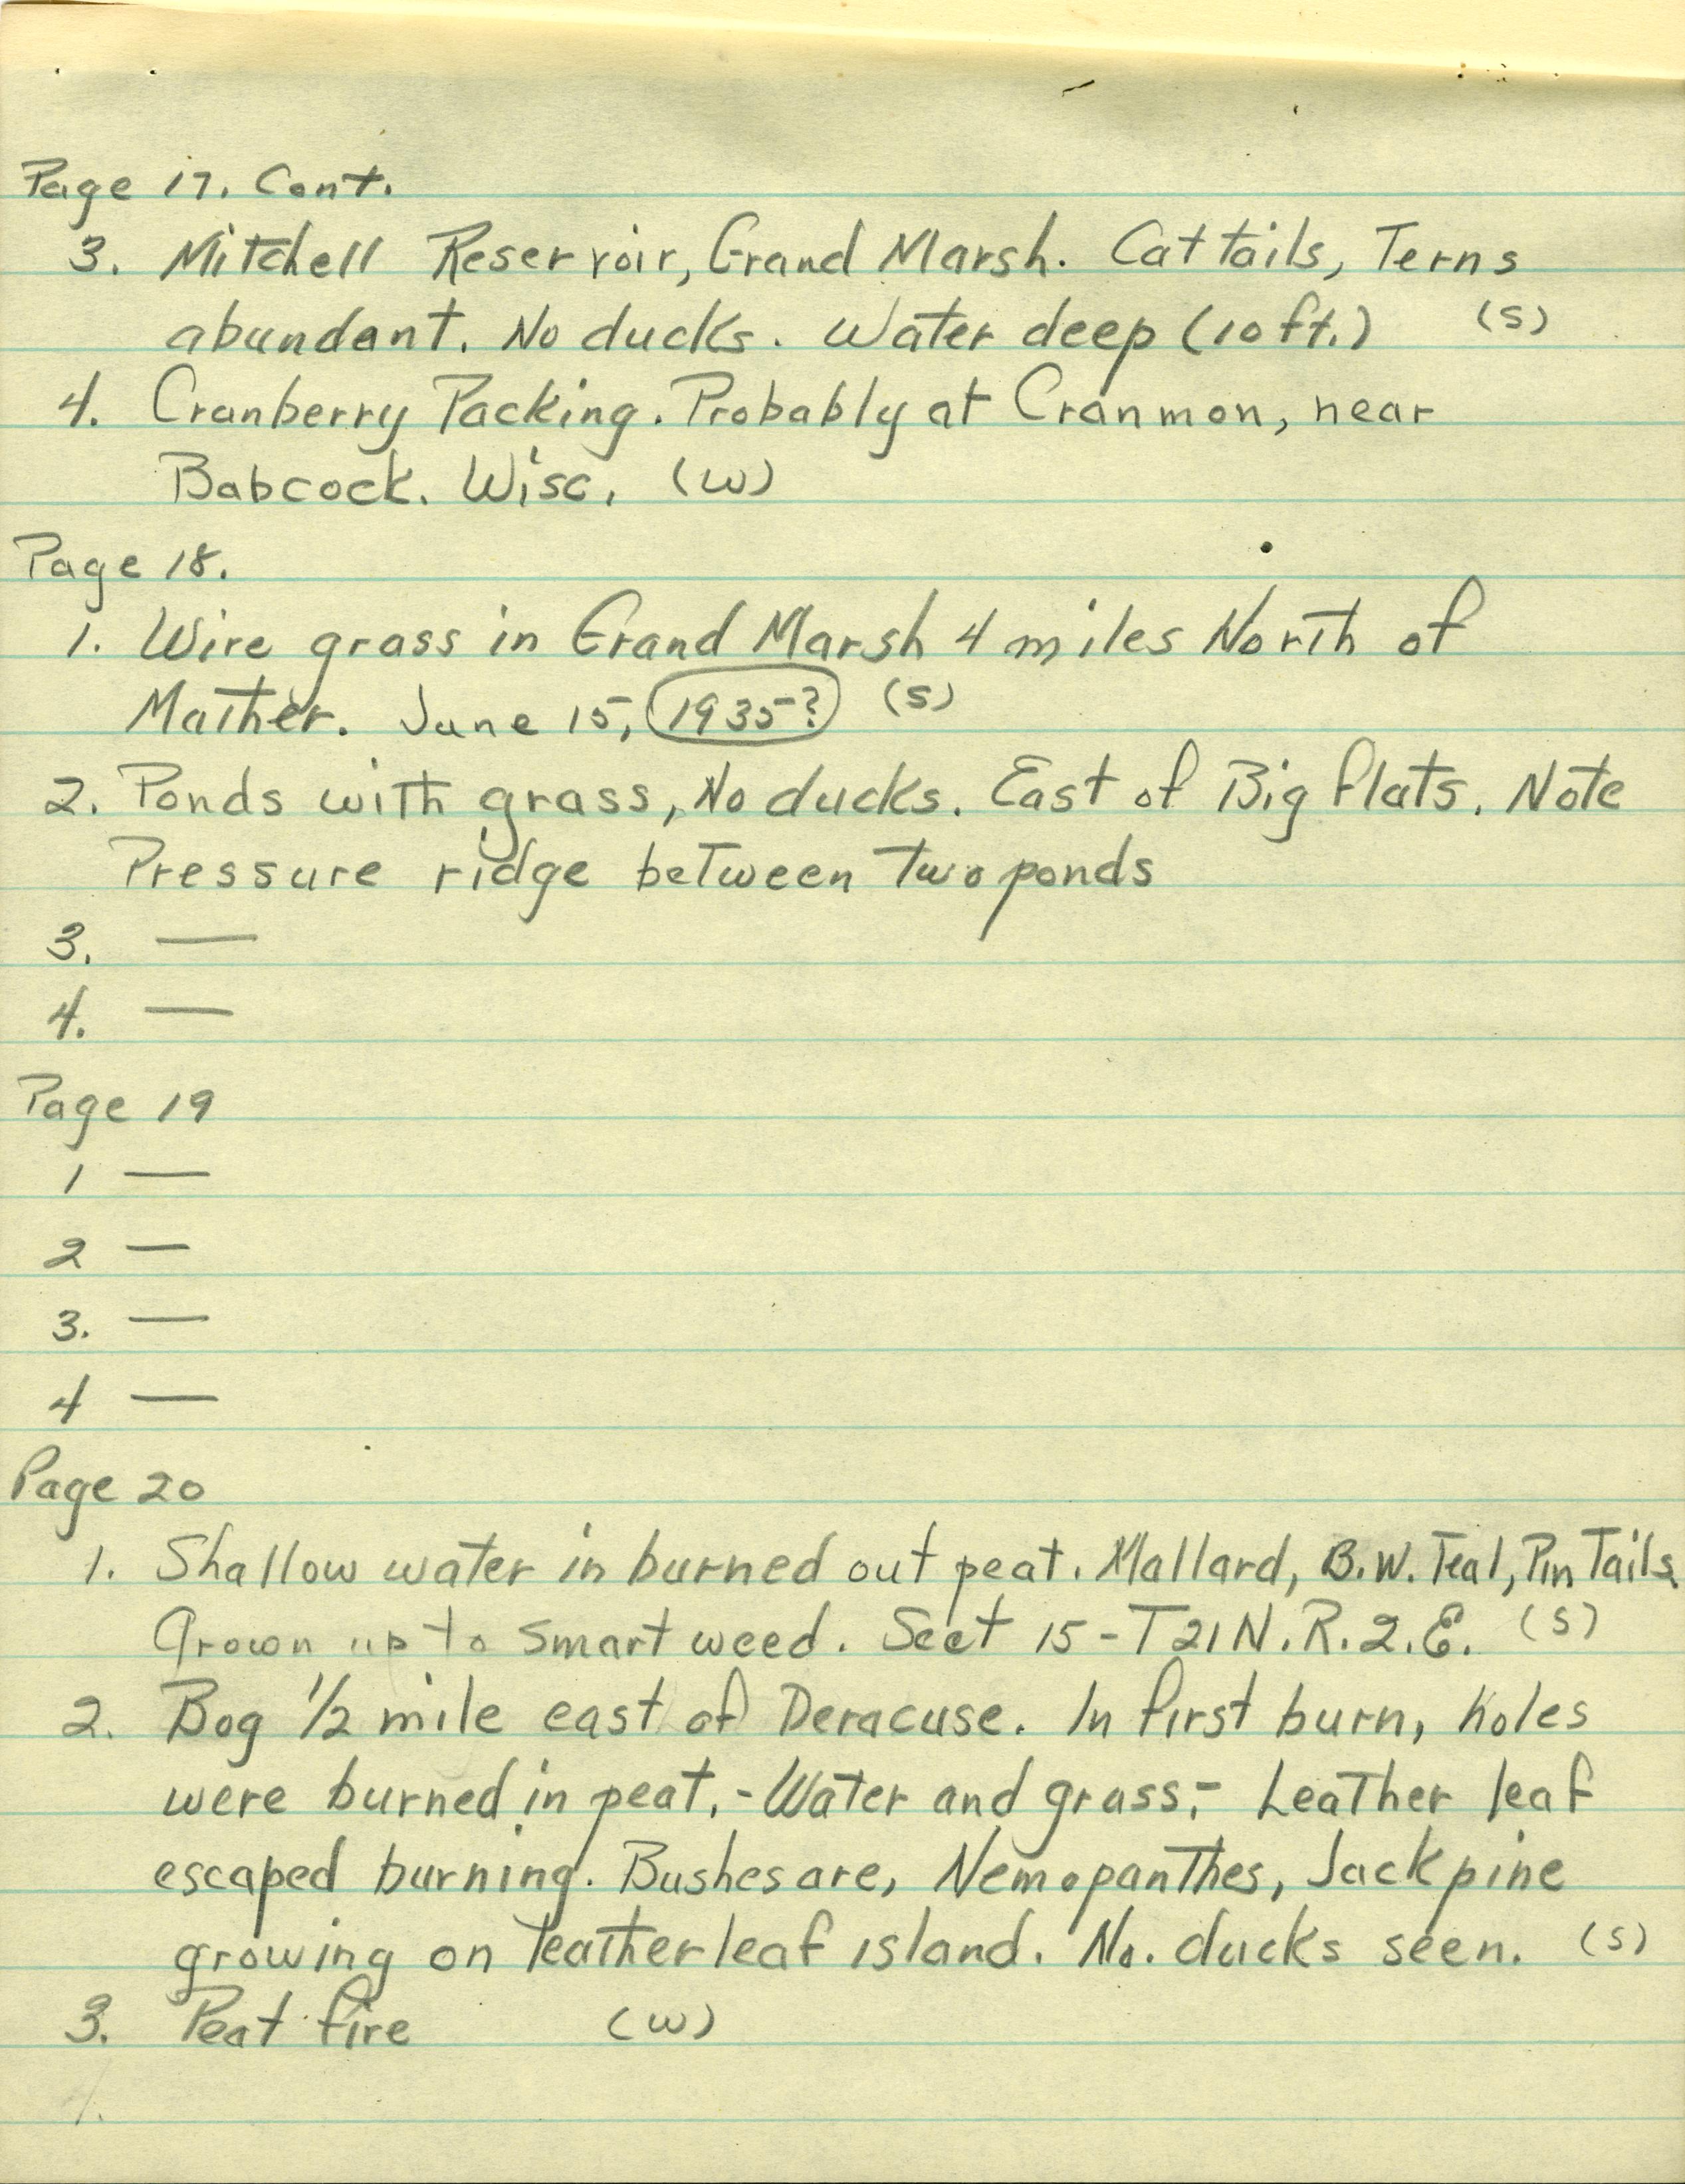 Page 17. Cont.
3. Mitchell Reservoir, Grand Marsh. Cat tails, Terns
abundant. No ducks. Water deep (10 ft.) (S)
4. Cranberry Packing. Probably at Cranmon, near
Babcock. Wisc. (W)
Page 18.
1. Wire grass in Grand Marsh 4 miles North of
Mather. June 15, 1935? (S)
2. Ponds with grass, No ducks. East of Big flats. Note
Pressure ridge between two ponds
3. —
4. —
Page 19
1 —
2 —
3. —
4 —
Page 20
1. Shallow water in burned out peat. Mallard, B.W. Teal, Pin Tails.
Grown up to smart weed. Sect 15 - T21N. R. 2. E. (S)
2. Bog 1/2 mile east of Deracuse. In first burn, holes
were burned in peat. - Water and grass; - Leather leaf
escaped burning. Bushes are, Nemopanthes, Jack pine
growing on leatherleaf island. No. ducks seen. (S)
3. Peat fire (W)